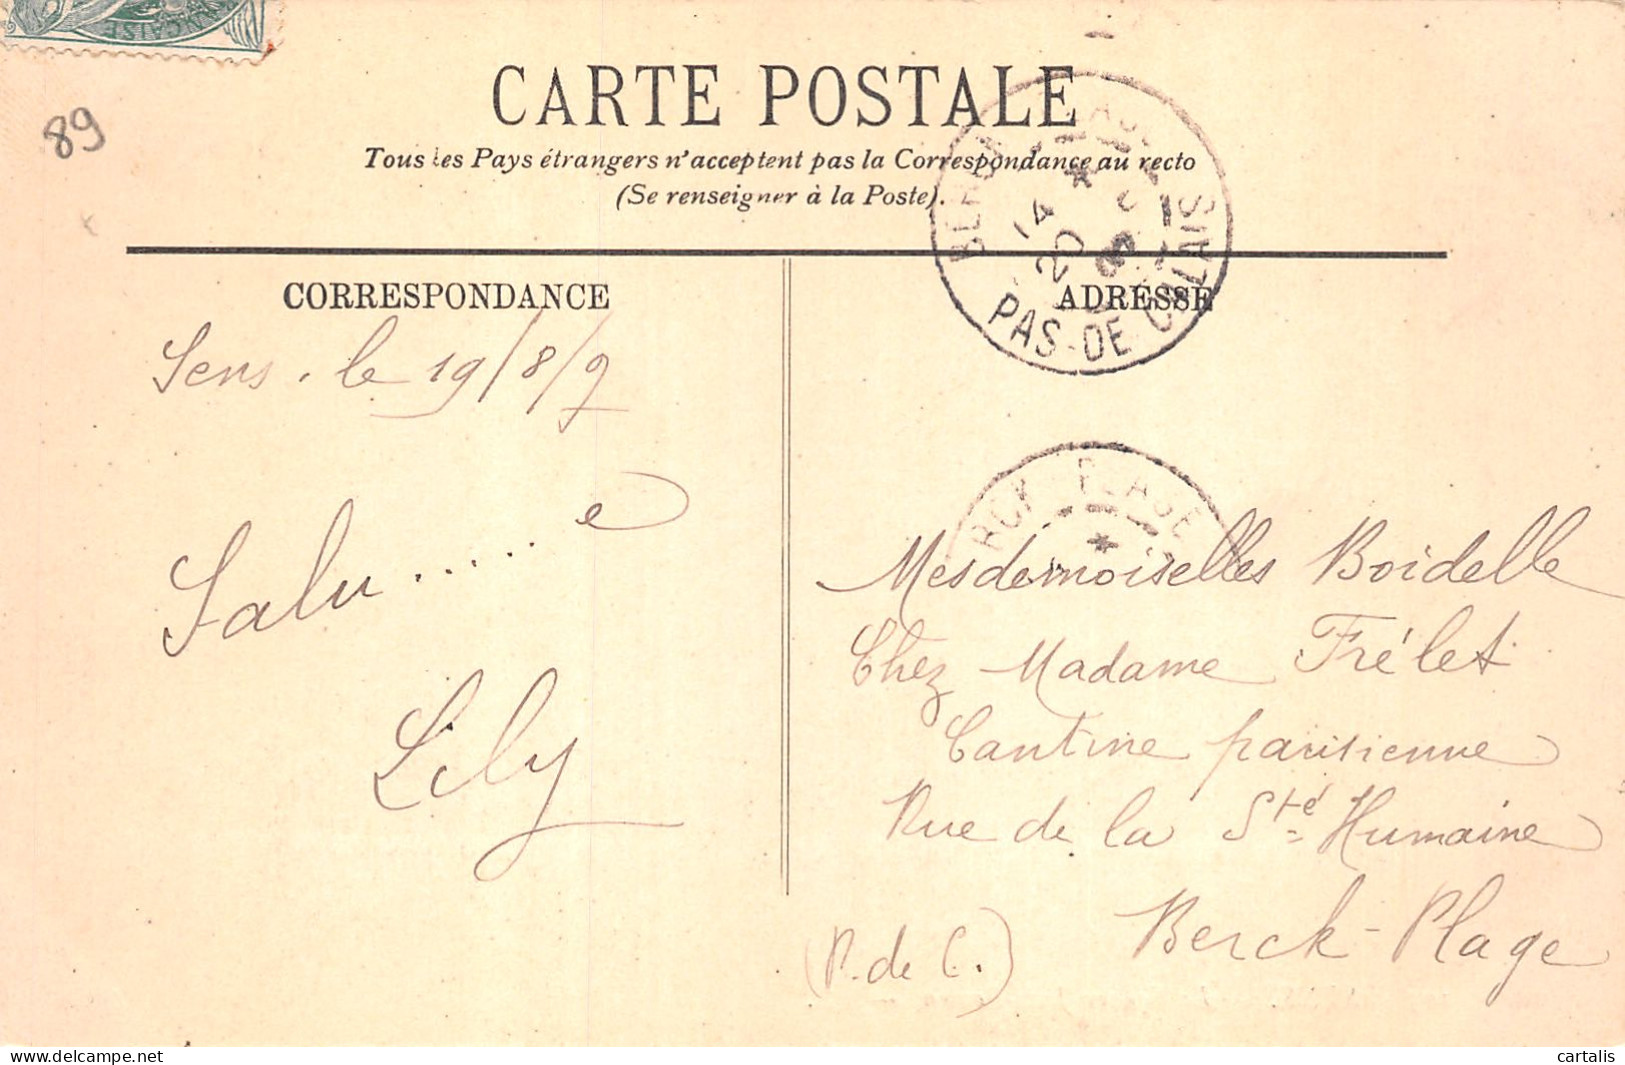 89
CARTE POSTALE
Tous les Pays étrangers n'acceptent pas la Correspondance au recto
(Se renseigner à la Poste).
PAS-DE-CALAIS
CORRESPONDANCE
Sens, le 19/8/9
Salu.......e
Lily
ADRESSE
Mesdemoiselles Boidelle
Chez Madame Frélet
Cantine parisienne
Rue de la Sté Humaine
Berck-Plage
(P. de C.)
delcampe.net
cartalis